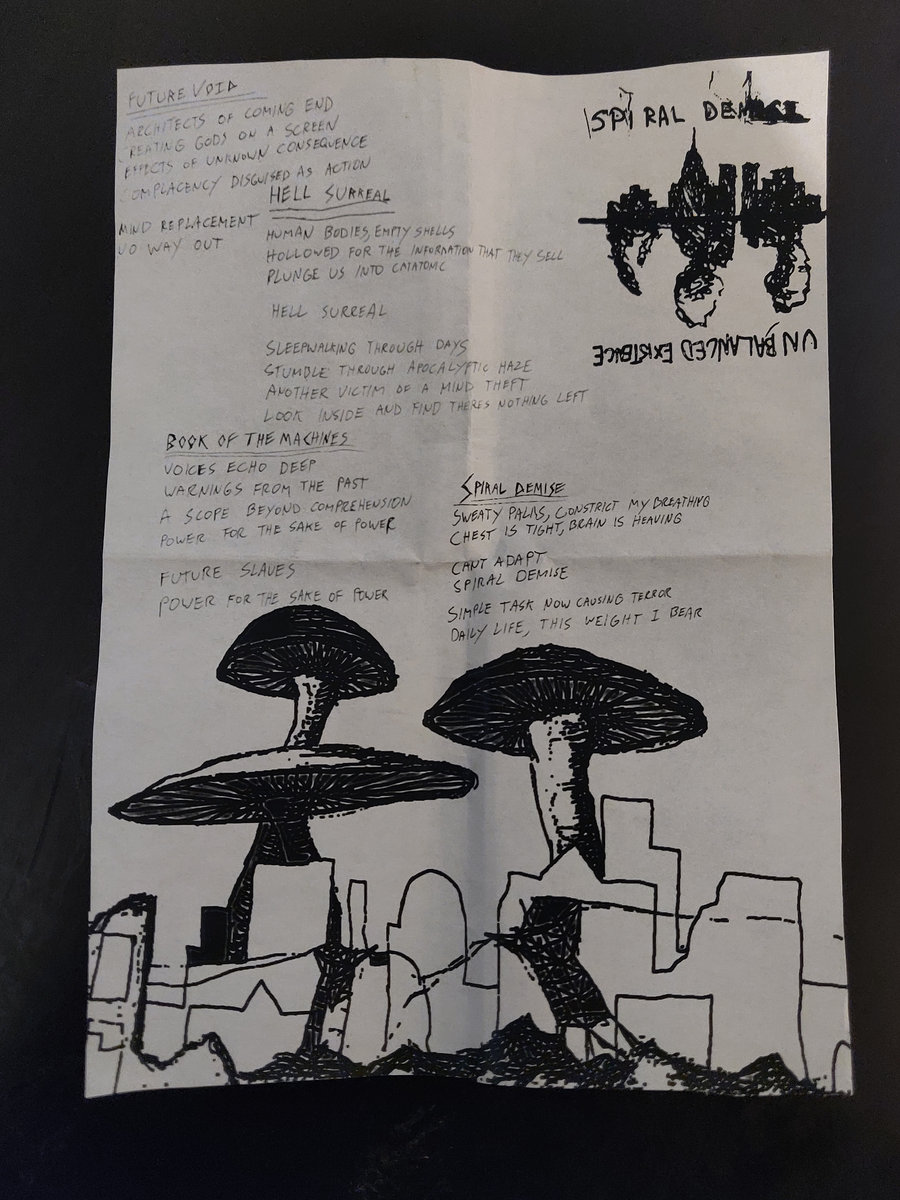 FUTURE VOID
ARCHITECTS OF COMING END
CREATING GODS ON A SCREEN
EFFECTS OF UNKNOWN CONSEQUENCE
COMPLACENCY DISGUISED AS ACTION
MIND REPLACEMENT
NO WAY OUT
HELL SURREAL
HUMAN BODIES, EMPTY SHELLS
HOLLOWED FOR THE INFORMATION THAT THEY SELL
PLUNGE US INTO CATATONIC
HELL SURREAL
SLEEPWALKING THROUGH DAYS
STUMBLE THROUGH APOCALYPTIC HAZE
ANOTHER VICTIM OF A MIND THEFT
LOOK INSIDE AND FIND THERES NOTHING LEFT
BOOK OF THE MACHINES
VOICES ECHO DEEP
WARNINGS FROM THE PAST
A SCOPE BEYOND COMPREHENSION
POWER FOR THE SAKE OF POWER
FUTURE SLAVES
POWER FOR THE SAKE OF POWER
SPIRAL DEMISE
UNBALANCED EXISTENCE
SPIRAL DEMISE
SWEATY PALMS, CONSTRICT MY BREATHING
CHEST IS TIGHT, BRAIN IS HEAVING
CANT ADAPT
SPIRAL DEMISE
SIMPLE TASK NOW CAUSING TERROR
DAILY LIFE, THIS WEIGHT I BEAR